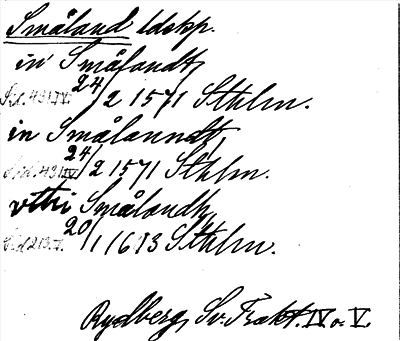 Småland ldskp.
in Småfandt
Sid. 431.IV. 24/2 1571 Sthlm.
in Smålanndt,
Sid. 431.IV 24/2 1571 Sthlm.
vthi Smålandh,
Sid 213.V. 20/1 1613 Sthlm.
Rydberg, Sv. Trakt. IV o. V.